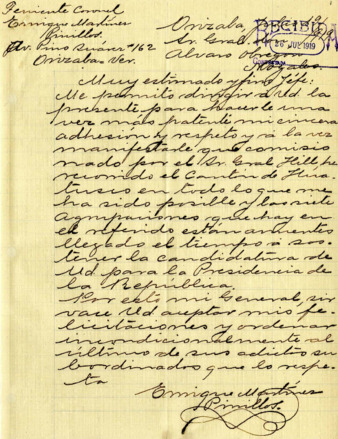 Teniente Coronel
Enrique Martinez
Pinillos.
Av. Pino Suárez #162
Orizaba, Ver.
Orizaba,
RECIBIDO
26 JUL 1919
Sr. Gral.
Alvaro Obregon
Nogales.
Muy estimado y fino Jefe:
Me permito dirigir a Ud la
presente para hacerle una
vez más patente mi cincera
adhesion y respeto y á la vez
manifestarle que comisio
nado por el Sr. Gral Hill he
recorrido el Canton de Hua
tusco en todo lo que me
ha sido posible y las siete
agrupaciones que hay en
el referido estan
llegado el tiempo á sos-
tener la candidatura de
Ud para la Presidencia de
la República.
Por esto mi General, sir
vase Ud aceptar mis fe-
licitaciones y ordenar
incondicionalmente al
último de sus adictos su
bordinados que lo respe-
ta
Enrique Martinez
Pinillos.